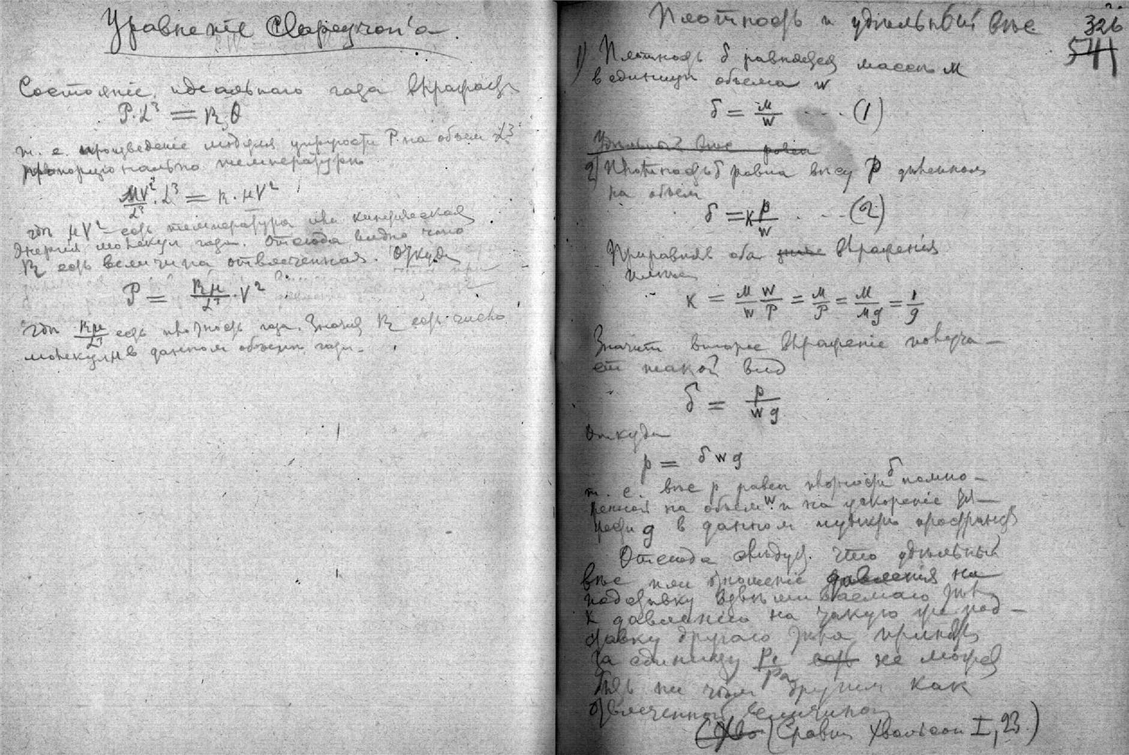 Уравненіе Clapeyron'a.
Состояніе идеального газа
P·L³ = RΘ
т. е. произведеніе модуля упругости P на объем L³
пропорціонально температуры
μV²/L³ · L³ = R·μV²
гдѣ μV² есть температура или кинетическая
энергія молекул газа. Отсюда видно что
R есть величина отвлеченная. Откуда
P = Rμ/L³ · V²
гдѣ Rμ/L³ есть плотность газа. Значит R есть число
молекул в данном объемѣ газа.
Плотность и удѣльный вѣс
326
541
1) Плотность δ равняется массѣ м
в единицѣ объема w
δ = м/w .... (1)
Удѣльный вѣс равен
2) Плотность δ равна вѣсу p дѣленном
на объем
δ = K p/w ... (2)
Приравняв оба выраженія
имѣем
K = м/w w/p = м/p = м/мg = 1/g
Значит второе выраженіе получа–
ет такой вид
δ = p/wg
Откуда
p = δwg
т. е. вѣс p равен плотности δ помно–
женной на объем w и на ускореніе
g в данном пространства
Отсюда слѣдует, что удѣльный
вѣс или отношеніе давленія на
подставку взвѣшиваемаго тѣла
к давленію на такую же под–
ставку другаго тѣла принят
за единицу P₁/P₂ есть не может
быть ни чѣм другим как
отвлеченной величиной
(Сравни Хвольсон I, 23.)